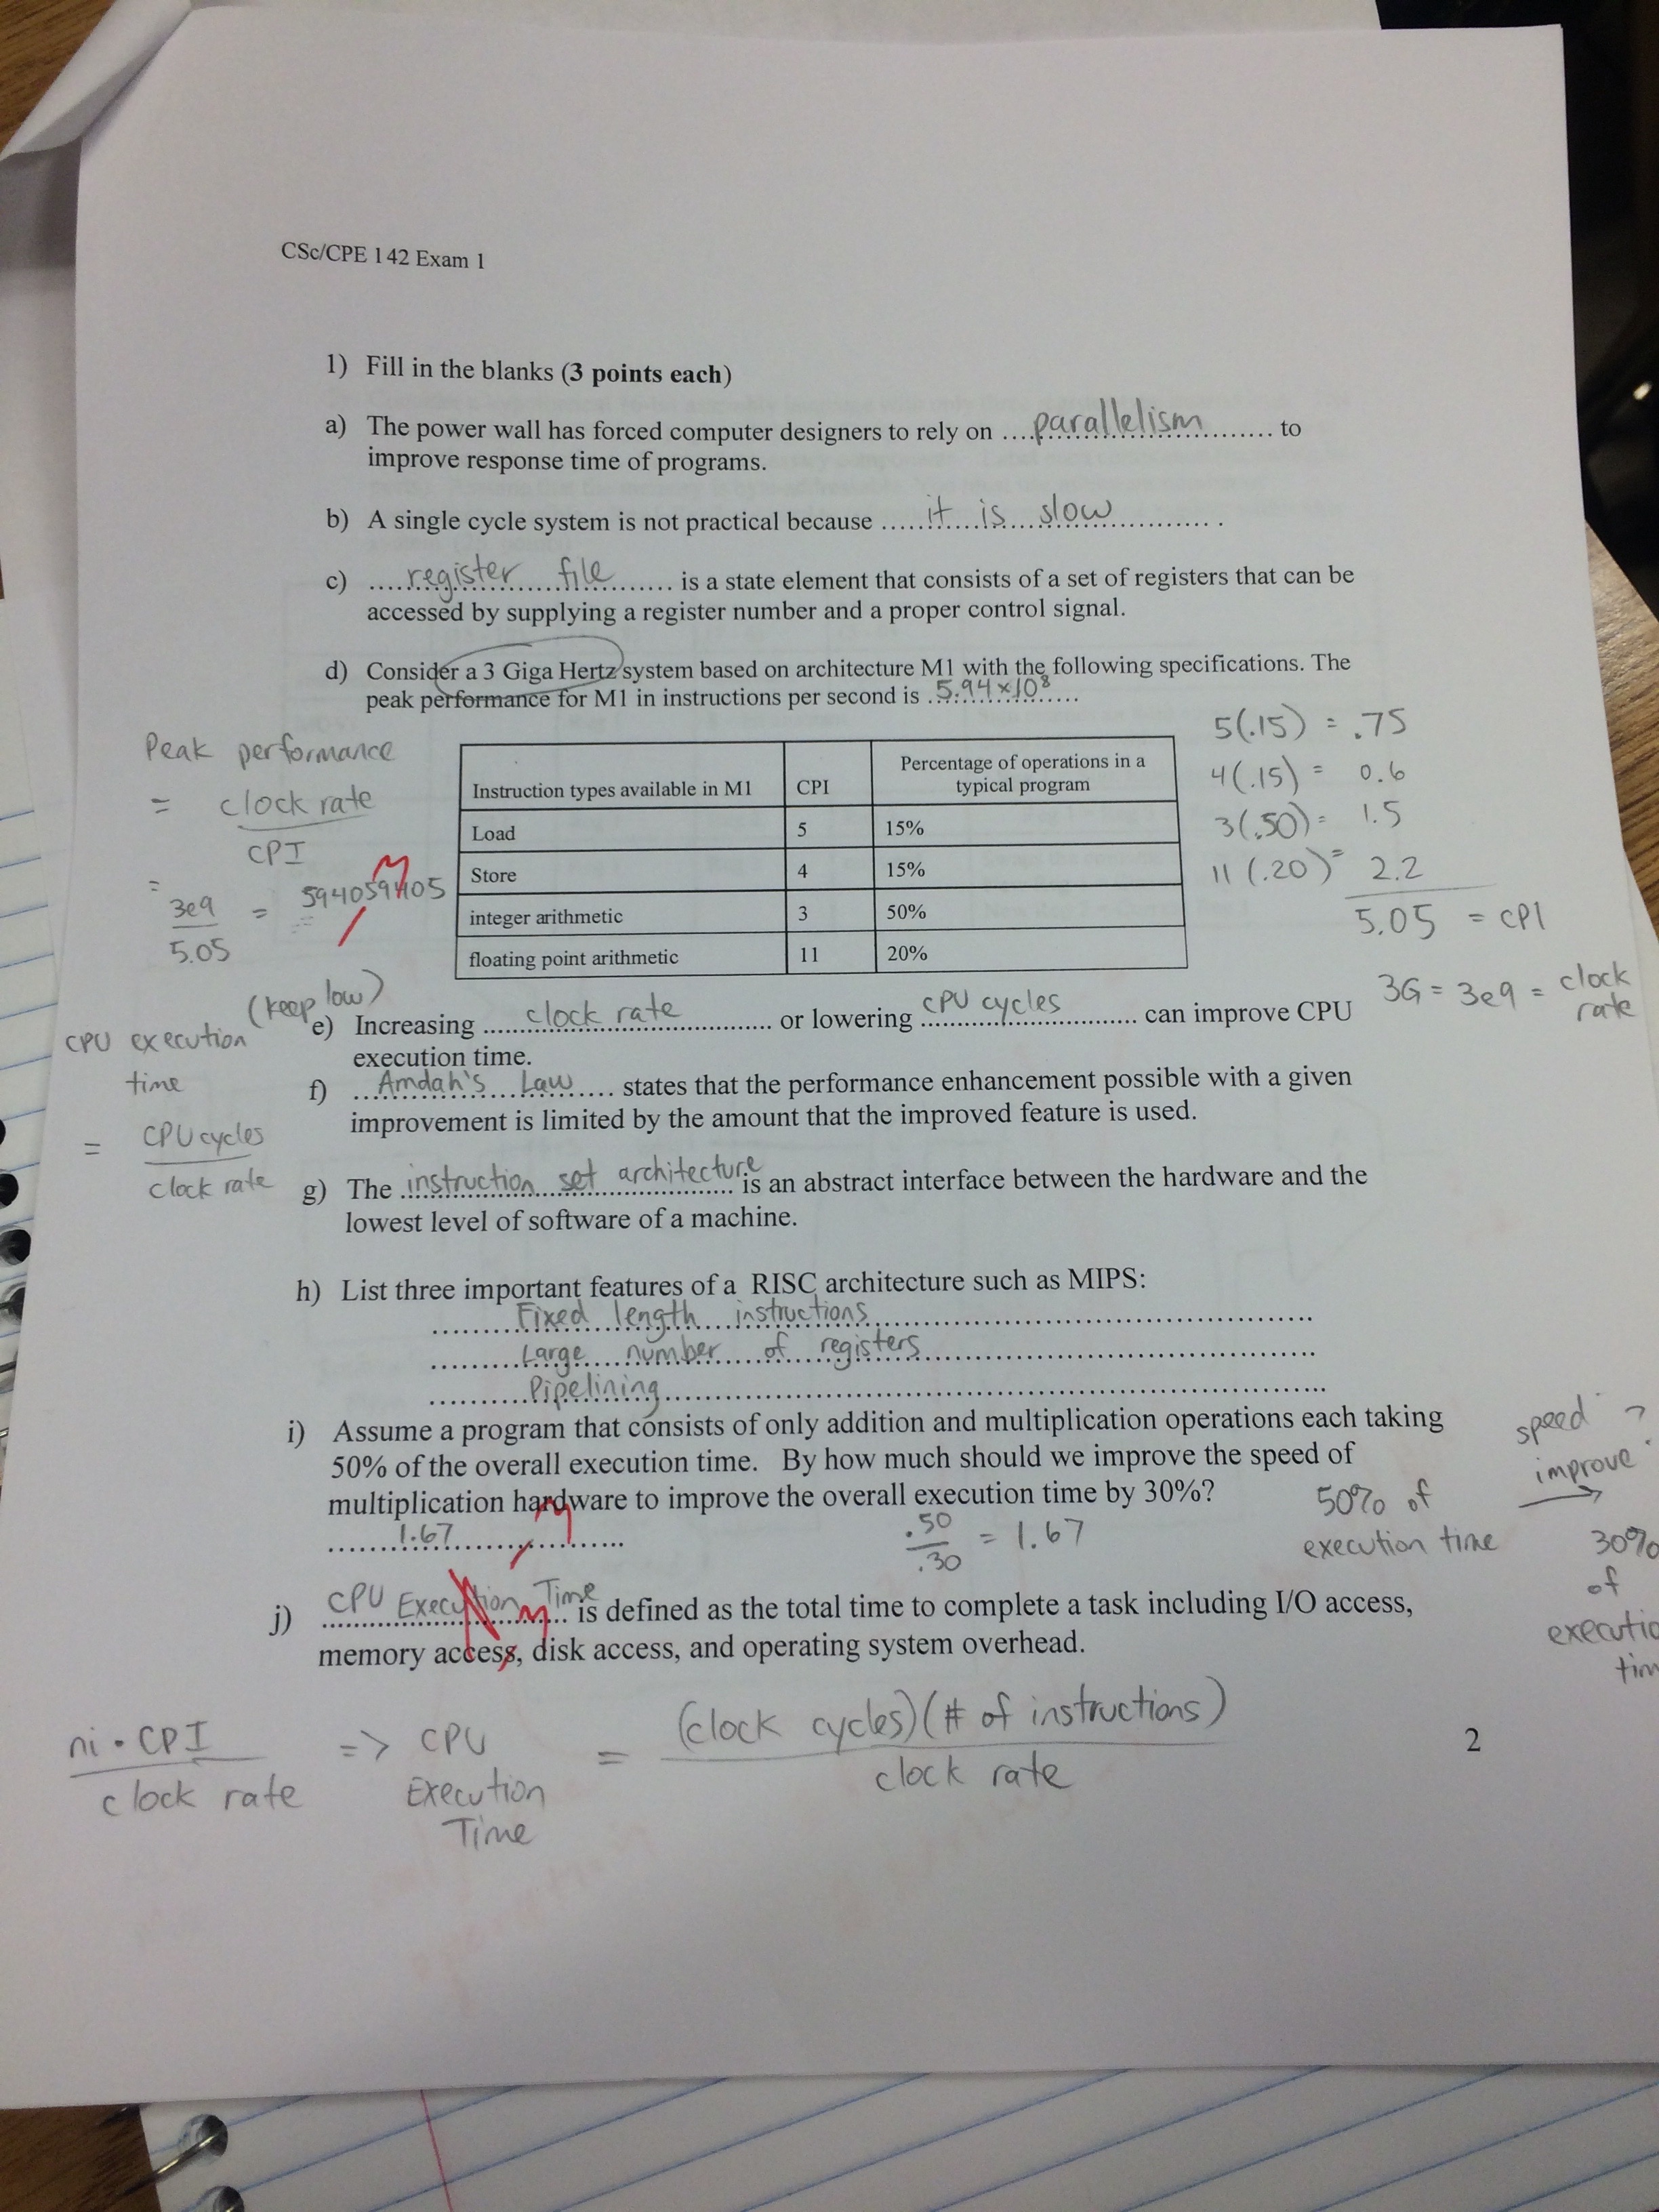 CSc/CPE 142 Exam 1
1) Fill in the blanks (3 points each)
a) The power wall has forced computer designers to rely on ....parallelism.... to
improve response time of programs.
b) A single cycle system is not practical because .....it is slow..... .
c) ....register file.... is a state element that consists of a set of registers that can be
accessed by supplying a register number and a proper control signal.
d) Consider a 3 Giga Hertz system based on architecture M1 with the following specifications. The
peak performance for M1 in instructions per second is ..5.94×10⁸.....
Peak performance
= clock rate
CPI
= 3e9 = 594059405
5.05
Instruction types available in M1 CPI Percentage of operations in a
typical program
Load 5 15%
Store 4 15%
integer arithmetic 3 50%
floating point arithmetic 11 20%
5(.15) = .75
4(.15) = 0.6
3(.50) = 1.5
11(.20) = 2.2
5.05 = CPI
3G = 3e9 = clock
rate
(keep low)
e) Increasing ....clock rate.... or lowering ....CPU cycles.... can improve CPU
execution time.
CPU execution
time
= CPU cycles
clock rate
f) ....Amdah's Law.... states that the performance enhancement possible with a given
improvement is limited by the amount that the improved feature is used.
g) The ..instruction set architecture.. is an abstract interface between the hardware and the
lowest level of software of a machine.
h) List three important features of a RISC architecture such as MIPS:
Fixed length instructions
Large number of registers
Pipelining
i) Assume a program that consists of only addition and multiplication operations each taking
50% of the overall execution time. By how much should we improve the speed of
multiplication hardware to improve the overall execution time by 30%?
1.67
.50 = 1.67
.30
50% of
execution time
speed ?
improve
30%
of
executio
tim
j) CPU Execution Time is defined as the total time to complete a task including I/O access,
memory access, disk access, and operating system overhead.
ni • CPI
clock rate
=> CPU
Execution
Time
= (clock cycles)(# of instructions)
clock rate
2